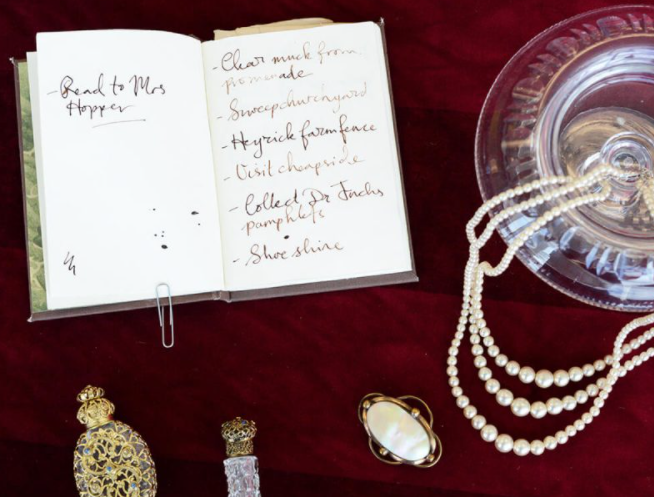 - Read to Mrs
Hopper
- Clear muck from
promenade
- Sweep churchyard
- Heyrick farm fence
- Visit cheapside
- Collect Dr Fuchs
pamphlets
- Shoe shine